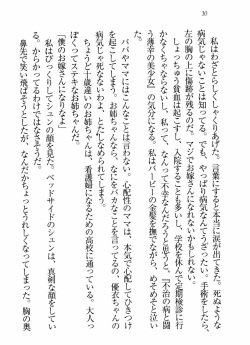 30
私はわざとらしくしゃくりあげた。言葉にすると本当に涙が出てきた。死ぬような
病気じゃないことは、私だって知っている。でも、やっぱり病気なんだもの。手術をしたら、
左の胸の下に傷跡が残るのだ。マジでお嫁さんになれないかもしれない。
しょっちゅう貧血は起こすし、入院することも多いし、学校を休んで定期検診に行
かなくちゃならないし。私って、なんて不幸なんだろうって思うと、「不治の病と闘
う薄幸の美少女」の気分になる。私はバービーの金髪を撫でながら、めそめそと泣い
た。
パパやママにはこんなことは言わない。心配性のママは、本気で心配してひきつけ
を起こしてしまう。お姉ちゃんなら、なにをバカなこと言ってんのよ、優衣ちゃんの
病気じゃ死なないの、と笑い飛ばすだろう。
ちょうど十歳違いのお姉ちゃんは、看護婦になるための高校に通っている。大人っ
ぽくってステキなお姉ちゃんだ。
「僕のお嫁さんになりなよ」
私はびっくりしてシュンの顔を見た。ベッドサイドのシュンは、真剣な顔をしてい
る。からかってるわけではなさそうだ。
鼻先で笑い飛ばそうとしたが、なんだかちょっとうれしくなってしまった。胸の奥